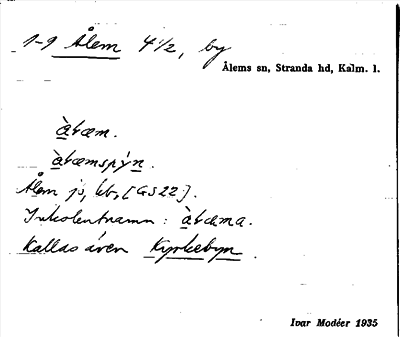 1-9 Ålem 4 1/2, by
Ålems sn, Stranda hd, Kalm. l.
àɫæm.
àɫæmspýn.
Ålem js, kb, [GS22].
Inkolentnamn: àɫæma.
Kallas även Kyrkebyn.
Ivar Modéer 1935